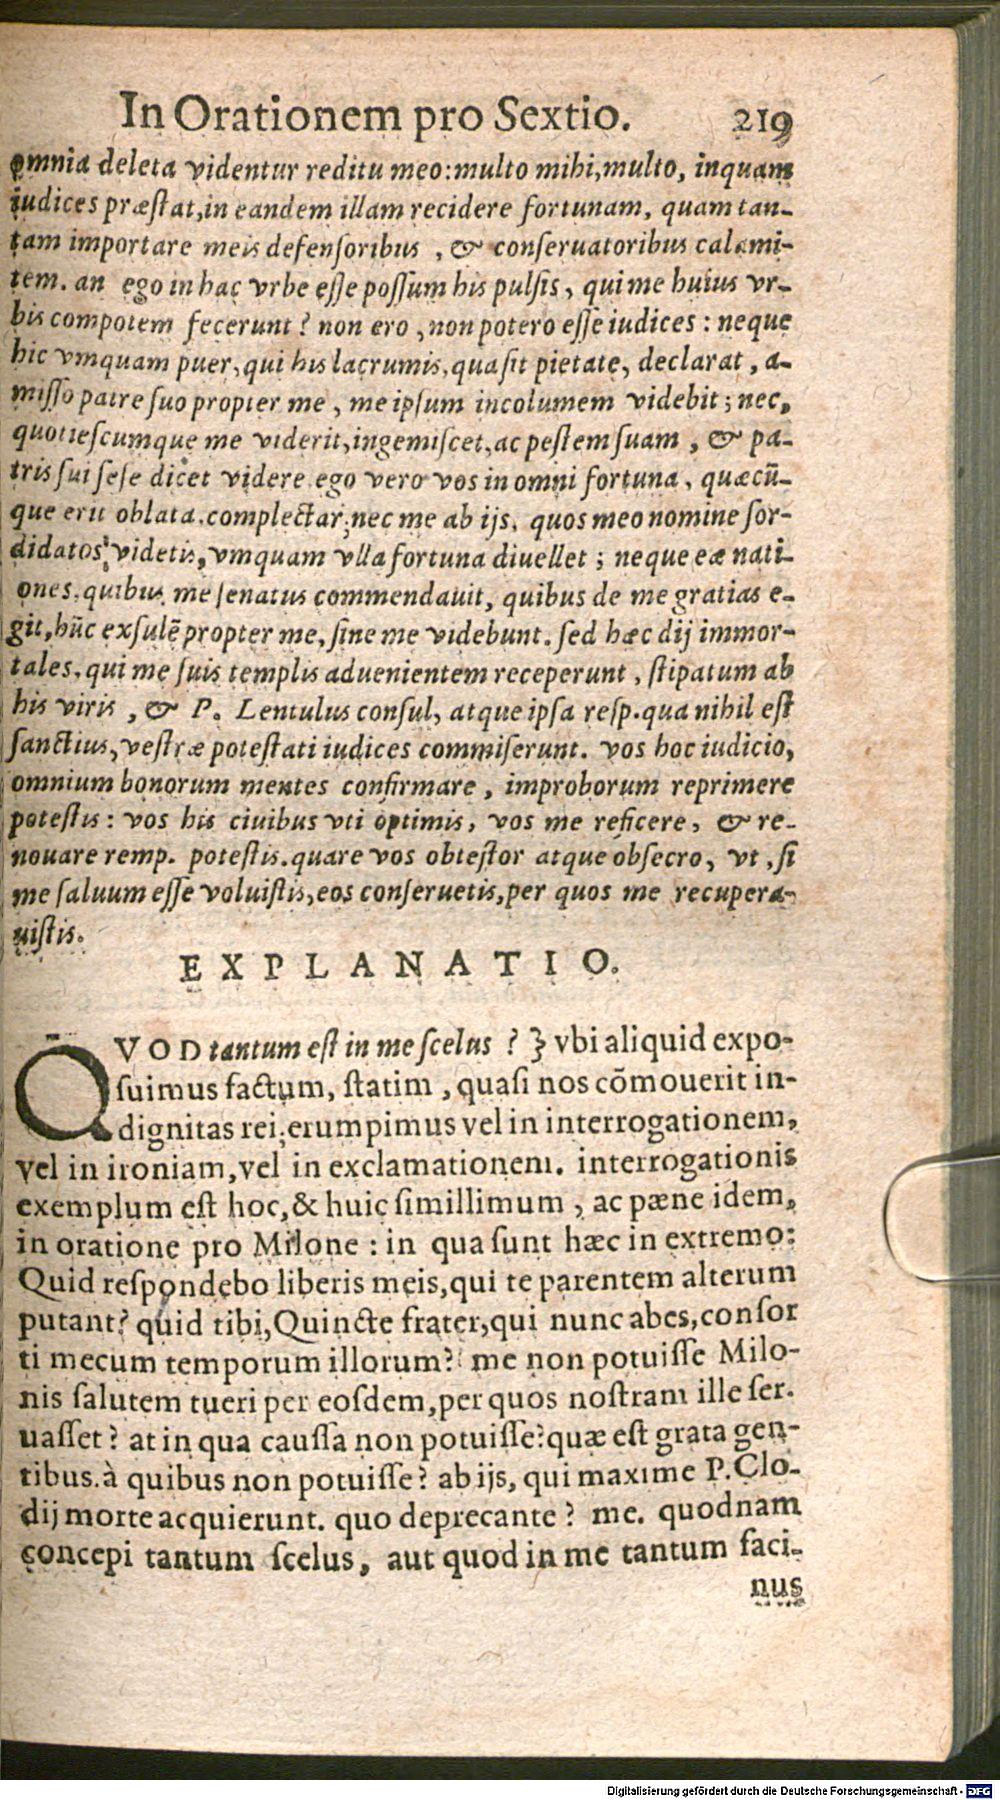 In Orationem pro Sextio. 219
omnia deleta videntur reditu meo: multo mihi, multo, inquam
iudices præstat, in eandem illam recidere fortunam, quam tan-
tam importare meis defensoribus, & conseruatoribus calami-
tem. an ego in hac vrbe esse possum his pulsis, qui me huius vr-
bis compotem fecerunt? non ero, non potero esse iudices: neque
hic vmquam puer, qui his lacrumis, qua sit pietate, declarat, a-
misso patre suo propter me, me ipsum incolumem videbit; nec,
quotiescumque me viderit, ingemiscet, ac pestem suam, & pa-
tris sui sese dicet videre. ego vero vos in omni fortuna, quæcū-
que erit oblata. complectar; nec me ab ijs, quos meo nomine sor-
didatos videtis, vmquam vlla fortuna diuellet; neque eæ nati-
ones. quibus me senatus commendauit, quibus de me gratias e-
git, hūc exsulē propter me, sine me videbunt. sed hæc dij immor-
tales, qui me suis templis aduenientem receperunt, stipatum ab
his viris, & P. Lentulus consul, atque ipsa resp. qua nihil est
sanctius, vestræ potestati iudices commiserunt. vos hoc iudicio,
omnium bonorum mentes confirmare, improborum reprimere
potestis: vos his ciuibus vti optimis, vos me reficere, & re-
nouare remp. potestis. quare vos obtestor atque obsecro, vt, si
me saluum esse voluistis, eos conseruetis, per quos me recupera-
uistis.
EXPLANATIO.
QVOD tantum est in me scelus? ] vbi aliquid expo-
suimus factum, statim, quasi nos cōmouerit in-
dignitas rei, erumpimus vel in interrogationem,
vel in ironiam, vel in exclamationem. interrogationis
exemplum est hoc, & huic simillimum, ac pæne idem,
in oratione pro Milone: in qua sunt hæc in extremo:
Quid respondebo liberis meis, qui te parentem alterum
putant? quid tibi, Quincte frater, qui nunc abes, consor
ti mecum temporum illorum? me non potuisse Milo-
nis salutem tueri per eosdem, per quos nostram ille ser-
uasset? at in qua caussa non potuisse? quæ est grata gen-
tibus. à quibus non potuisse? ab ijs, qui maxime P. Clo-
dij morte acquierunt. quo deprecante? me. quodnam
concepi tantum scelus, aut quod in me tantum faci-
nus
Digitalisierung gefördert durch die Deutsche Forschungsgemeinschaft - DFG